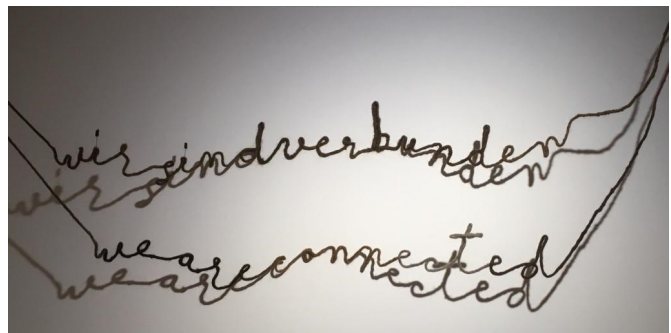 wir sind verbunden
we are connected